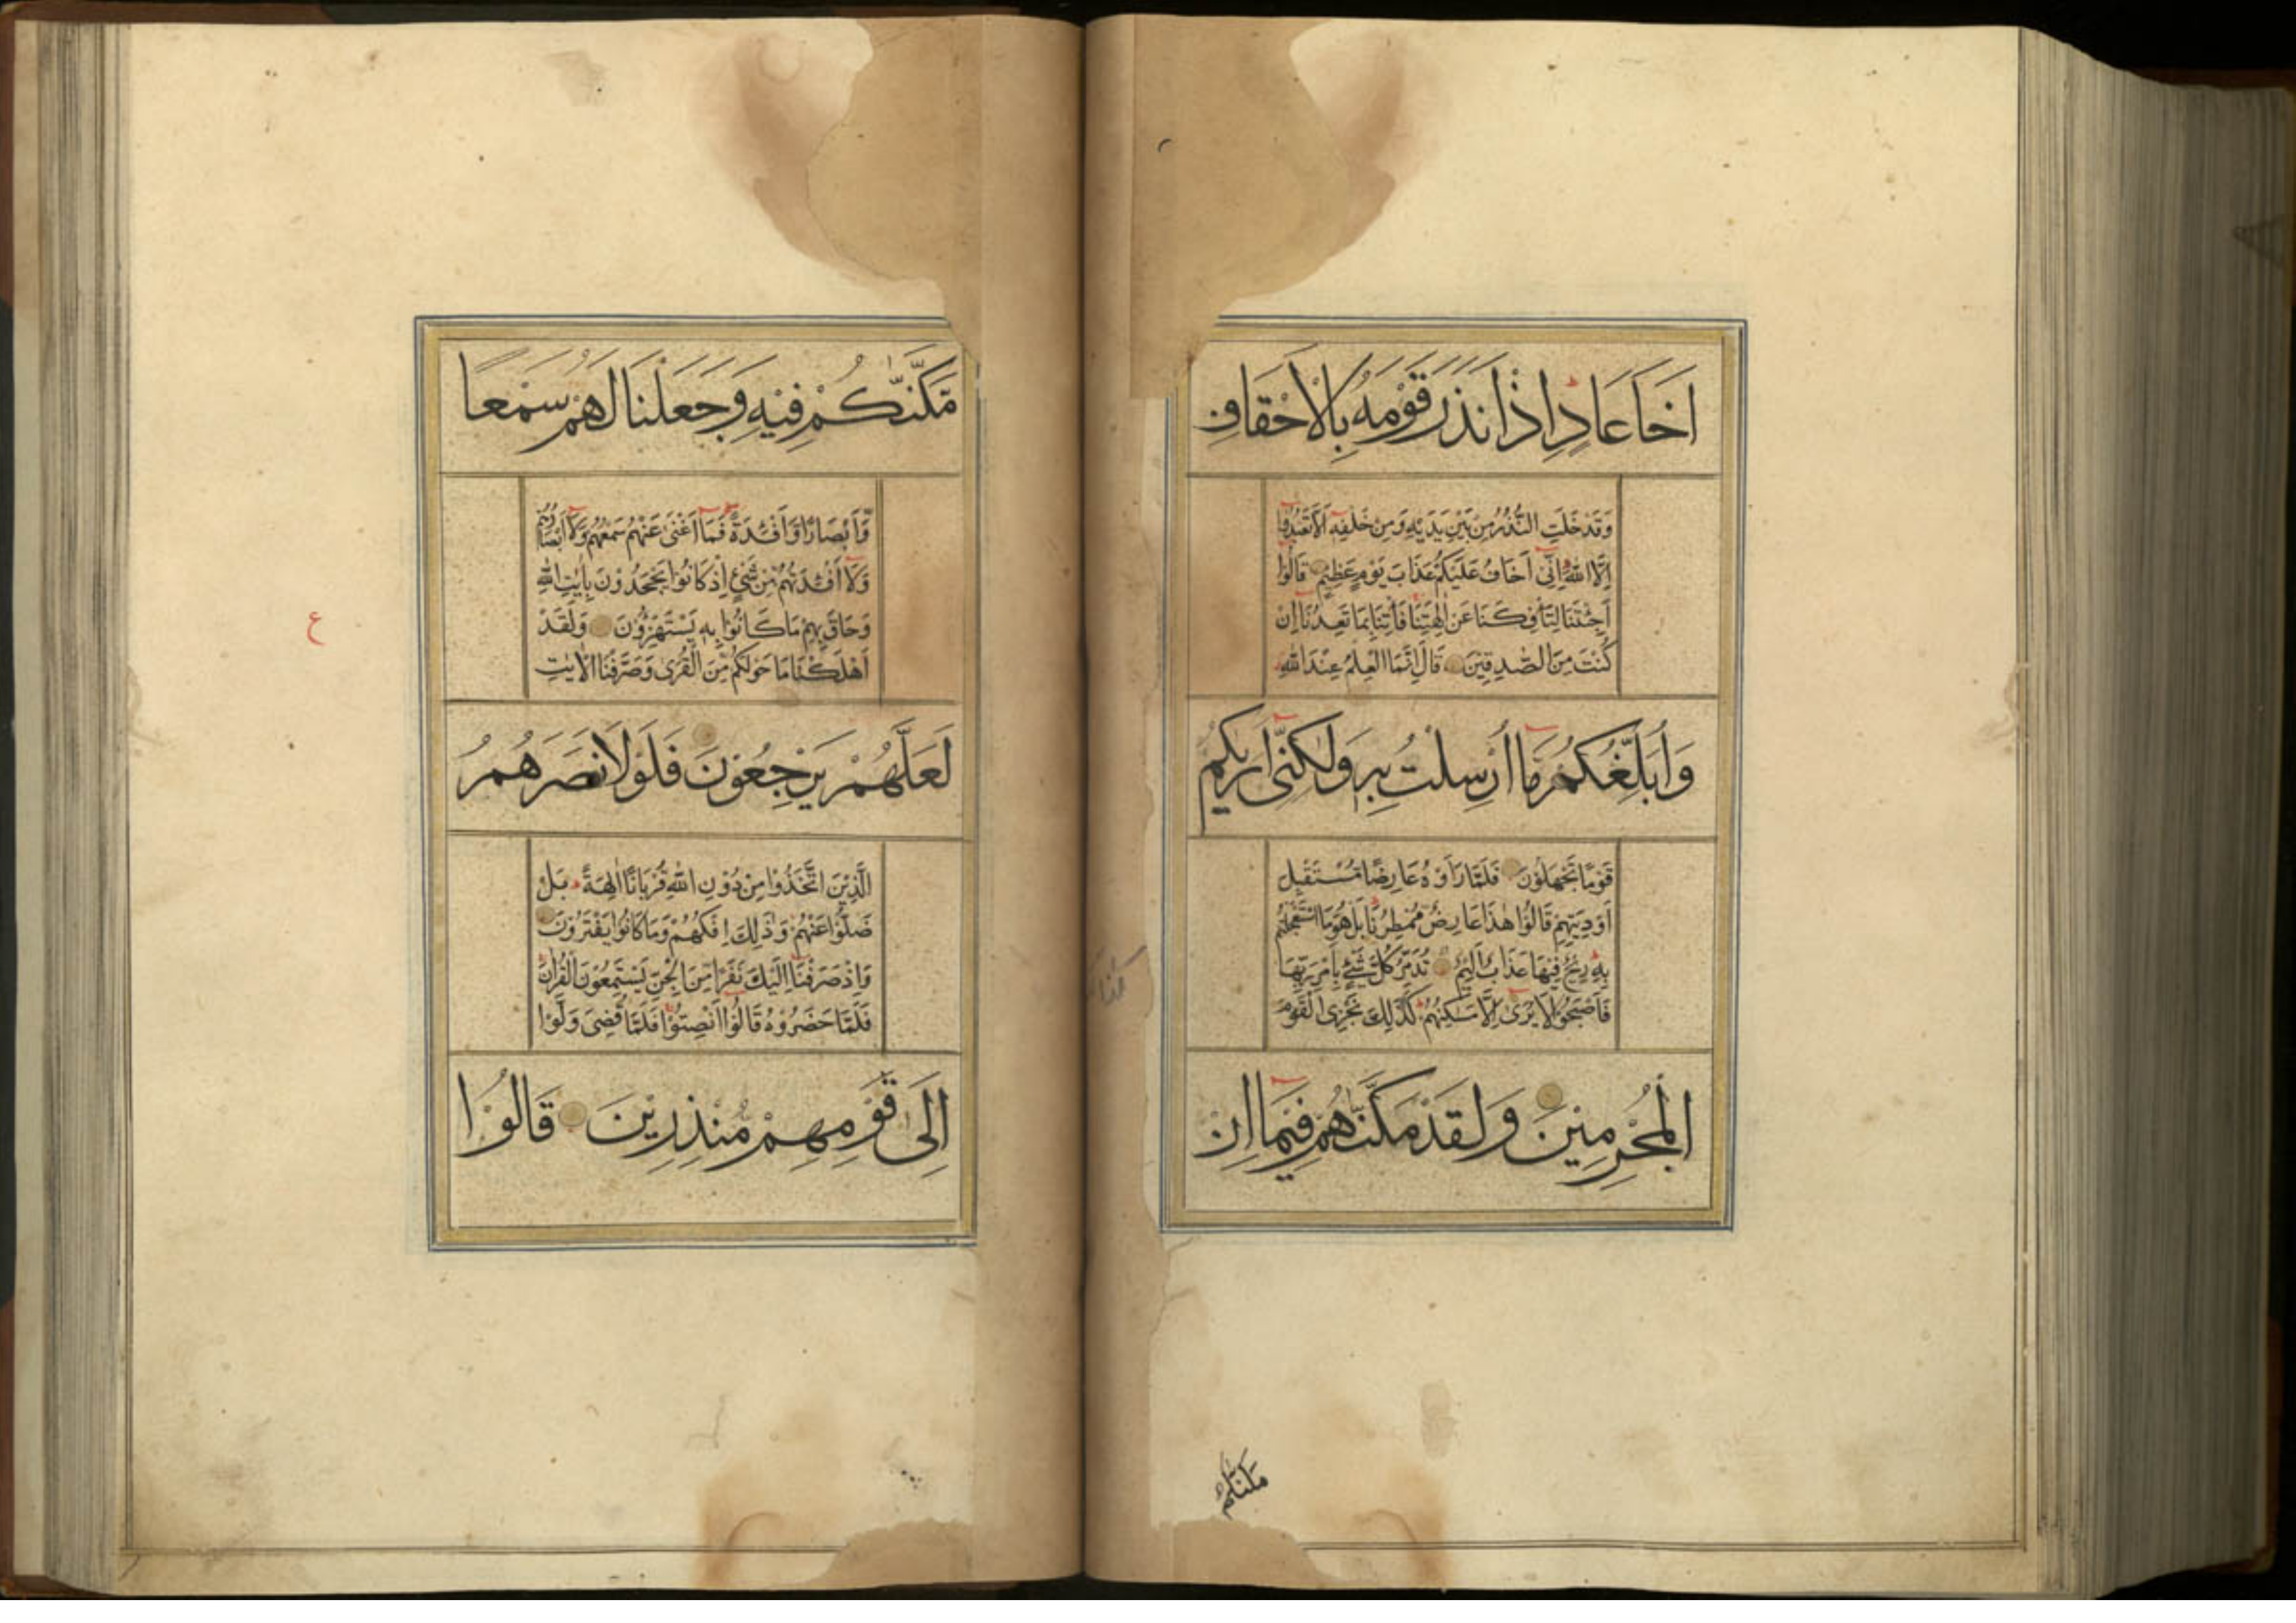 اَخَا عَادٍ اِذْ اَنْذَرَ قَوْمَهٗ بِالْاَحْقَافِ
وَقَدْ خَلَتِ النُّذُرُ مِنْ بَيْنِ يَدَيْهِ وَمِنْ خَلْفِهٖ اَلَّا تَعْبُدُوْٓا
اِلَّا اللّٰهَ اِنِّيْٓ اَخَافُ عَلَيْكُمْ عَذَابَ يَوْمٍ عَظِيْمٍ قَالُوْٓا
اَجِئْتَنَا لِتَاْفِكَنَا عَنْ اٰلِهَتِنَا فَاْتِنَا بِمَا تَعِدُنَآ اِنْ
كُنْتَ مِنَ الصّٰدِقِيْنَ قَالَ اِنَّمَا الْعِلْمُ عِنْدَ اللّٰهِ
وَاُبَلِّغُكُمْ مَّآ اُرْسِلْتُ بِهٖ وَلٰكِنِّيْٓ اَرٰىكُمْ
قَوْمًا تَجْهَلُوْنَ فَلَمَّا رَاَوْهُ عَارِضًا مُّسْتَقْبِلَ
اَوْدِيَتِهِمْ قَالُوْا هٰذَا عَارِضٌ مُّمْطِرُنَا بَلْ هُوَ مَا اسْتَعْجَلْتُمْ
بِهٖ رِيْحٌ فِيْهَا عَذَابٌ اَلِيْمٌ تُدَمِّرُ كُلَّ شَيْءٍ بِاَمْرِ رَبِّهَا
فَاَصْبَحُوْا لَا يُرٰٓى اِلَّا مَسٰكِنُهُمْ كَذٰلِكَ نَجْزِي الْقَوْمَ
الْمُجْرِمِيْنَ وَلَقَدْ مَكَّنّٰهُمْ فِيْمَآ اِنْ
مكناكم
مَّكَّنّٰكُمْ فِيْهِ وَجَعَلْنَا لَهُمْ سَمْعًا
وَّاَبْصَارًا وَّاَفْئِدَةً فَمَآ اَغْنٰى عَنْهُمْ سَمْعُهُمْ وَلَآ اَبْصَارُهُمْ
وَلَآ اَفْئِدَتُهُمْ مِّنْ شَيْءٍ اِذْ كَانُوْا يَجْحَدُوْنَ بِاٰيٰتِ اللّٰهِ
وَحَاقَ بِهِمْ مَّا كَانُوْا بِهٖ يَسْتَهْزِءُوْنَ وَلَقَدْ
اَهْلَكْنَا مَا حَوْلَكُمْ مِّنَ الْقُرٰى وَصَرَّفْنَا الْاٰيٰتِ
لَعَلَّهُمْ يَرْجِعُوْنَ فَلَوْلَا نَصَرَهُمُ
الَّذِيْنَ اتَّخَذُوْا مِنْ دُوْنِ اللّٰهِ قُرْبَانًا اٰلِهَةً بَلْ
ضَلُّوْا عَنْهُمْ وَذٰلِكَ اِفْكُهُمْ وَمَا كَانُوْا يَفْتَرُوْنَ
وَاِذْ صَرَفْنَآ اِلَيْكَ نَفَرًا مِّنَ الْجِنِّ يَسْتَمِعُوْنَ الْقُرْاٰنَ
فَلَمَّا حَضَرُوْهُ قَالُوْٓا اَنْصِتُوْا فَلَمَّا قُضِيَ وَلَّوْا
اِلٰى قَوْمِهِمْ مُّنْذِرِيْنَ قَالُوْا
ع